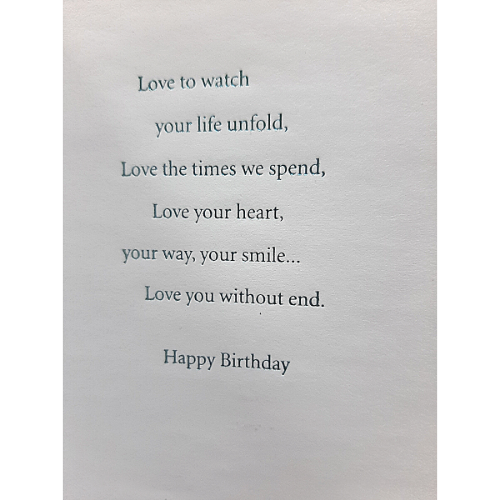 Love to watch
your life unfold,
Love the times we spend,
Love your heart,
your way, your smile...
Love you without end.
Happy Birthday